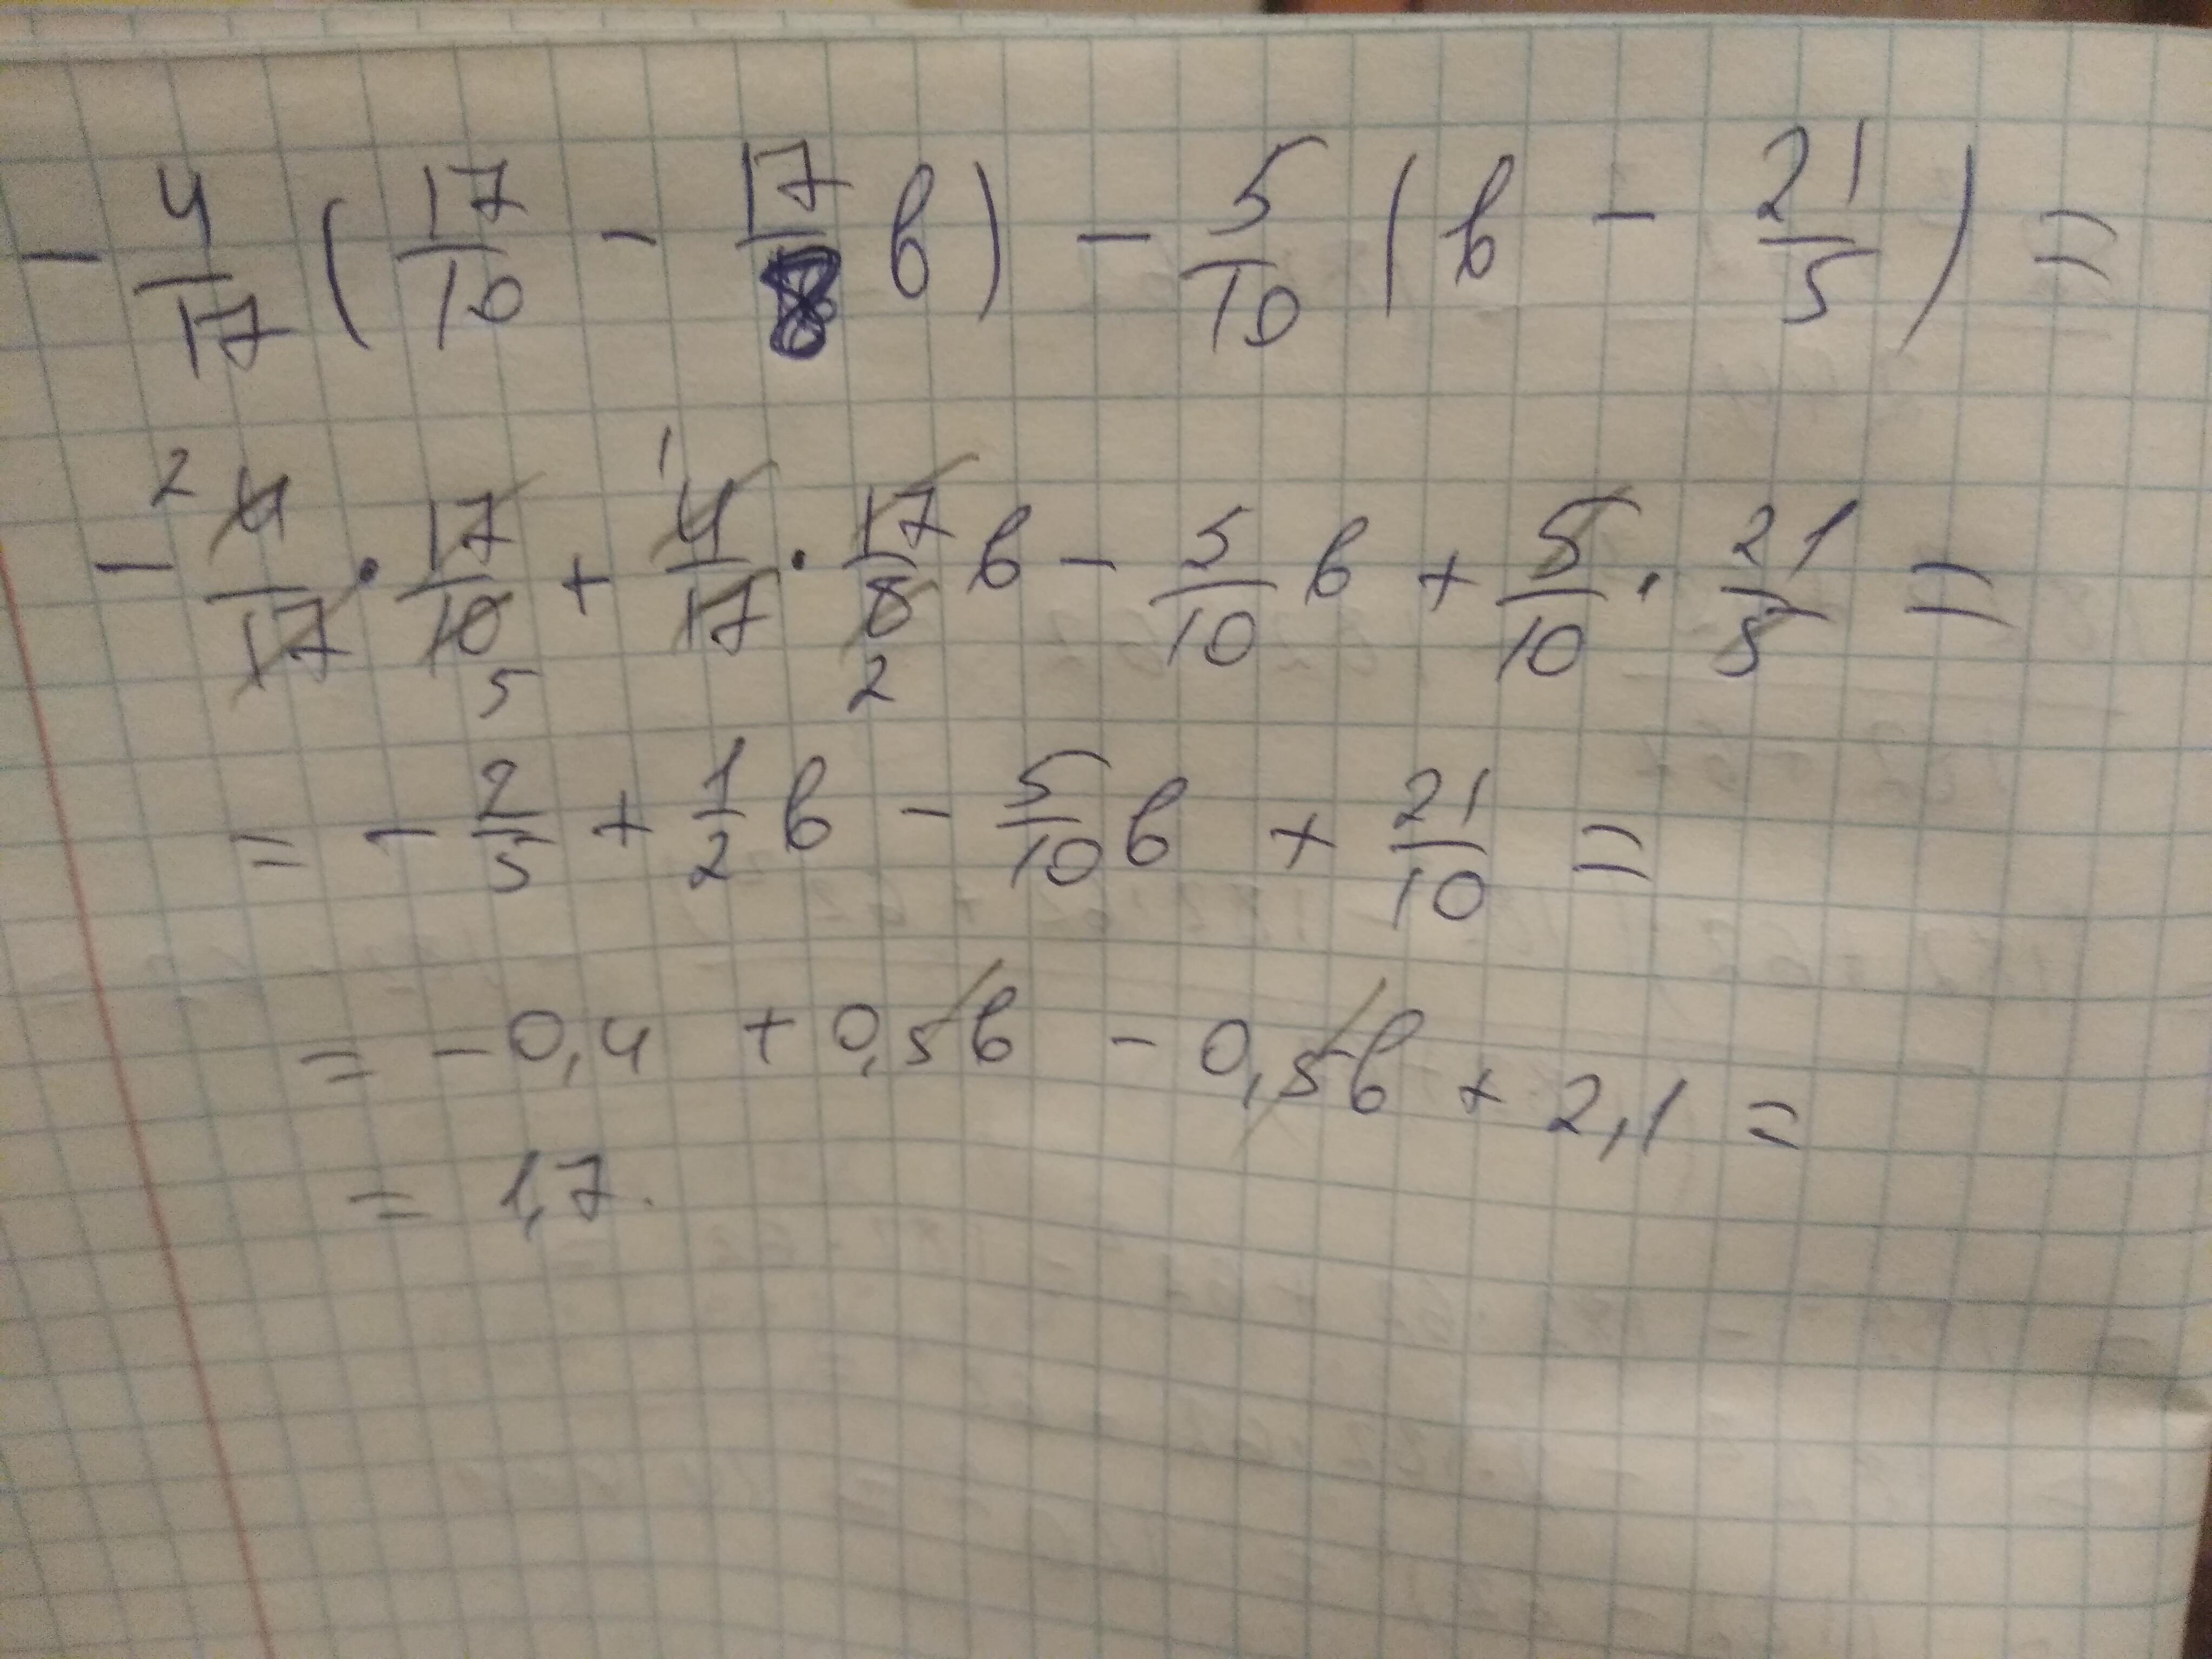 - 4/17 (17/10 - 17/8 в) - 5/10 (в - 21/5) =
- 2 4/17 · 17/10 5 + 1 4/17 · 17/8 2 в - 5/10 в + 5/10 · 21/5 =
= - 2/5 + 1/2 в - 5/10 в + 21/10 =
= - 0,4 + 0,5в - 0,5в + 2,1 =
= 1,7.